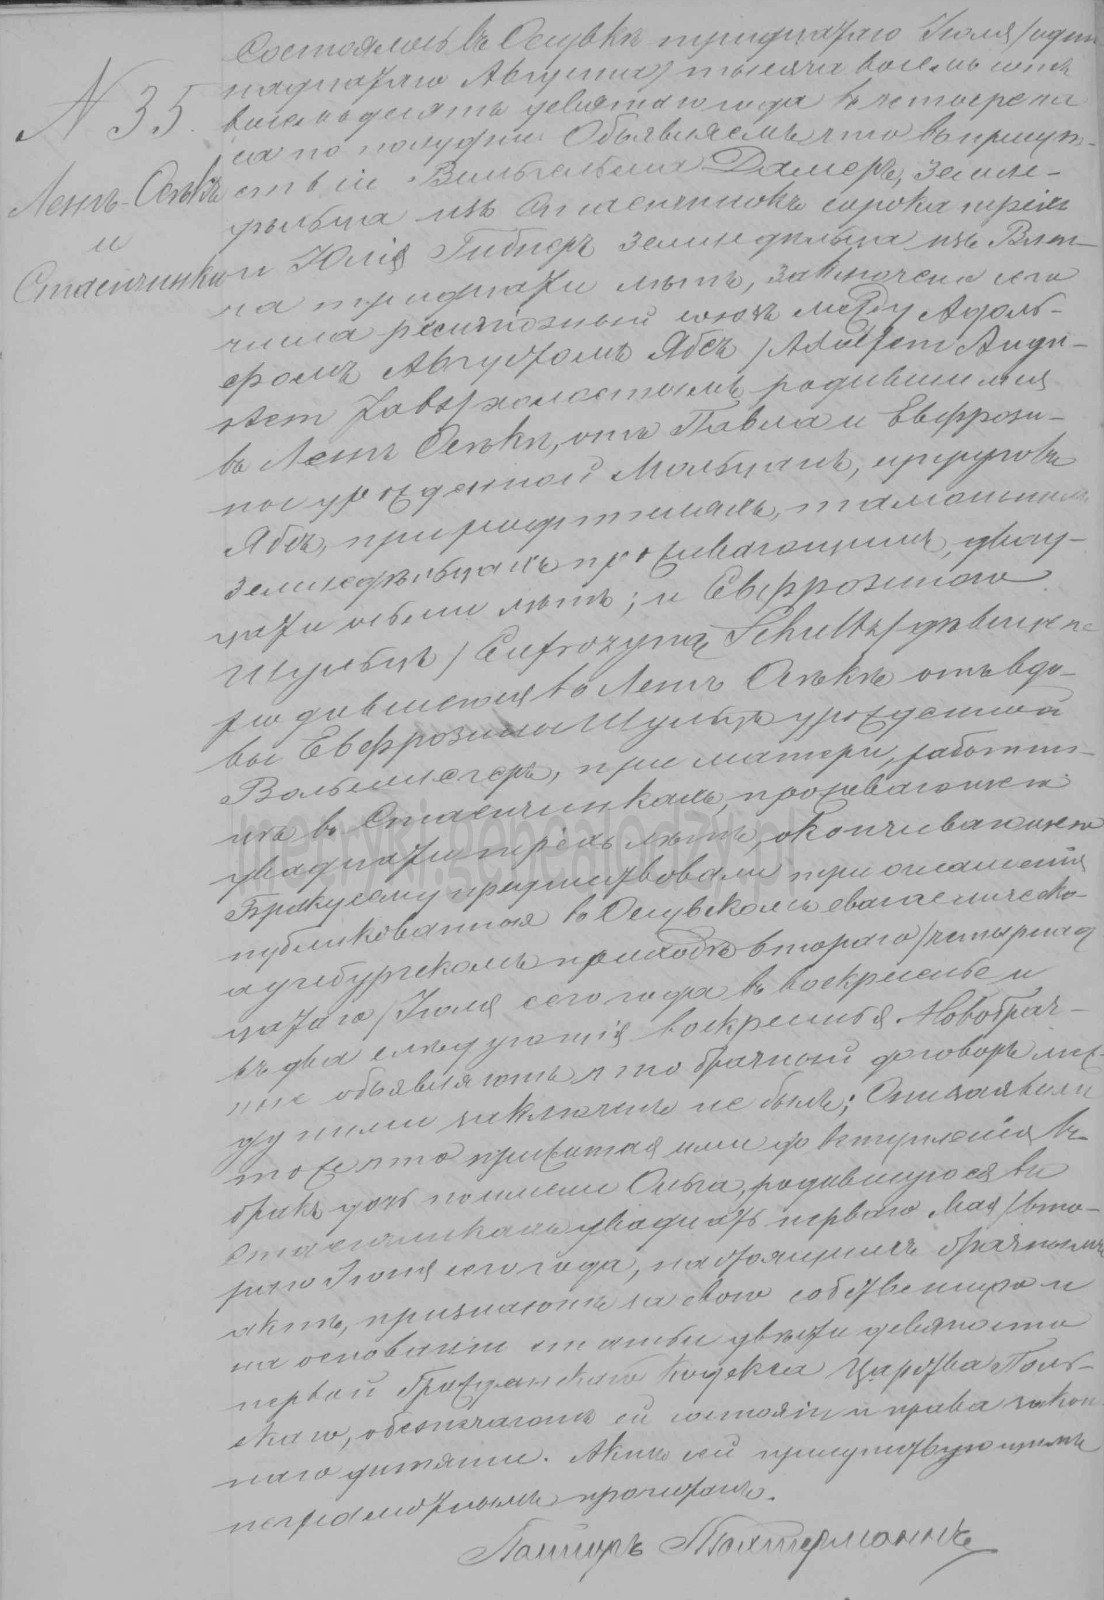 N 35.
Ленъ-Осѣкъ
и
Стаенчинки
Состоялось въ Осувкѣ тридцатаго Іюля /один
надцатаго Августа/ тысяча восемьсотъ
восемьдесятъ девятаго года въ четыре ча
са по полудни. Объявляемъ, что въ присут-
ствіи Вильгельма Дамеръ, земле-
дѣльца изъ Стаенчинокъ сорока трехъ
и Юлія Гибнеръ земледѣльца изъ
на тридцати лѣтъ, заключенъ сего
числа религіозный союзъ между Адоль-
фомъ Августомъ Ябсъ /Adolfem Augu-
stem Jabs/ холостымъ родившимся
въ Ленъ Осѣкѣ, отъ Павла и Евфрози-
ны урожденной Мольцанъ, супруговъ
Ябсъ, при родителяхъ, тамошнихъ
земледѣльцахъ проживающимъ, двад-
цати осьми лѣтъ; и Евфрозиною
Шульцъ /Eufrozyną Schultz/ дѣвицею
родившеюся въ Ленъ Осѣкѣ отъ вдо-
вы Евфрозины Шульцъ урожденной
при матери, работни-
цѣ въ Стаенчинкахъ, проживающею
двадцати трехъ лѣтъ, оканчивающею
Браку сему предшествовали три оглашенія
публикованныя въ Осувскомъ евангелическо-
аугсбургскомъ приходѣ втораго /четырнад
цатаго/ Іюля сего года въ воскресенье и
въ два слѣдующія воскресенья. Новобрач-
ные объявляютъ что брачный договоръ меж-
ду ними заключенъ не былъ; Они заявили
тоже что прижитая ими до вступленія въ
бракъ дочь по имени Ольга, родившуюся въ
Стаенчинкахъ двадцать перваго Мая /вто-
раго Іюня сего года, настоящимъ брачнымъ
актъ, признаютъ за свою собственную и
на основаніи статьи двѣсти девяносто
первой Гражданскаго Кодекса Царства Поль-
скаго, обезпечаютъ ей состояніе и права закон
наго дитяти. Актъ сей присутствующимъ
неграмотнымъ прочитанъ.
Пасторъ
metryki.genealodzy.pl